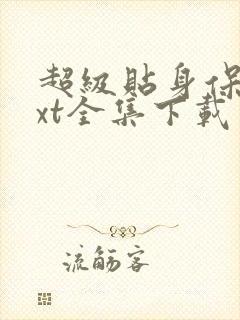 超級貼身保
xt全集下載
流觞客